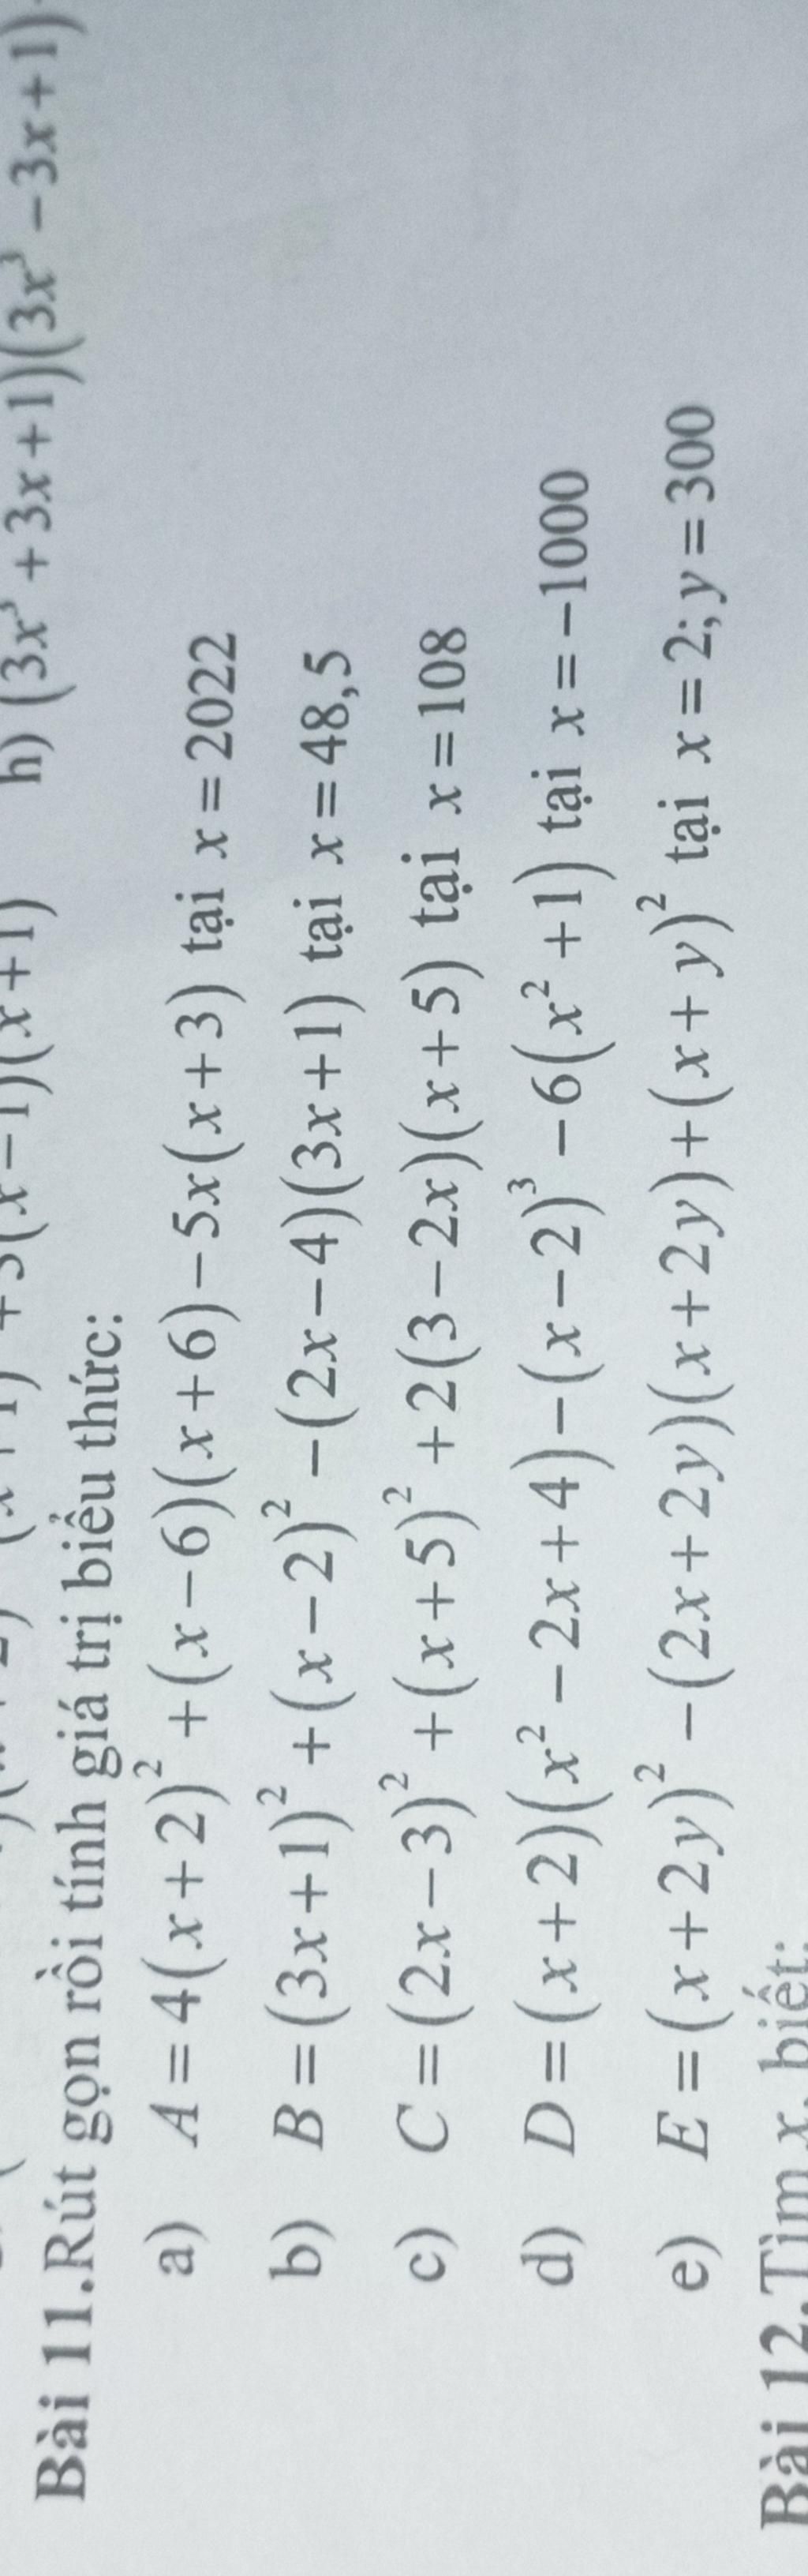 +1)(3x³−3x+1)
h) (3x³+3x+1)
(x−1)(x+1)
Bài 11.Rút gọn rồi tính giá trị biểu thức:
a) A=4(x+2)²+(x−6)(x+6)−5x(x+3) tại x=2022
b) B=(3x+1)²+(x−2)²−(2x−4)(3x+1) tại x=48,5
c) C=(2x−3)²+(x+5)²+2(3−2x)(x+5) tại x=108
d) D=(x+2)(x²−2x+4)−(x−2)³−6(x²+1) tại x=−1000
e) E=(x+2y)²−(2x+2y)(x+2y)+(x+y)² tại x=2; y=300
Bài 12.Tìm x, biết: